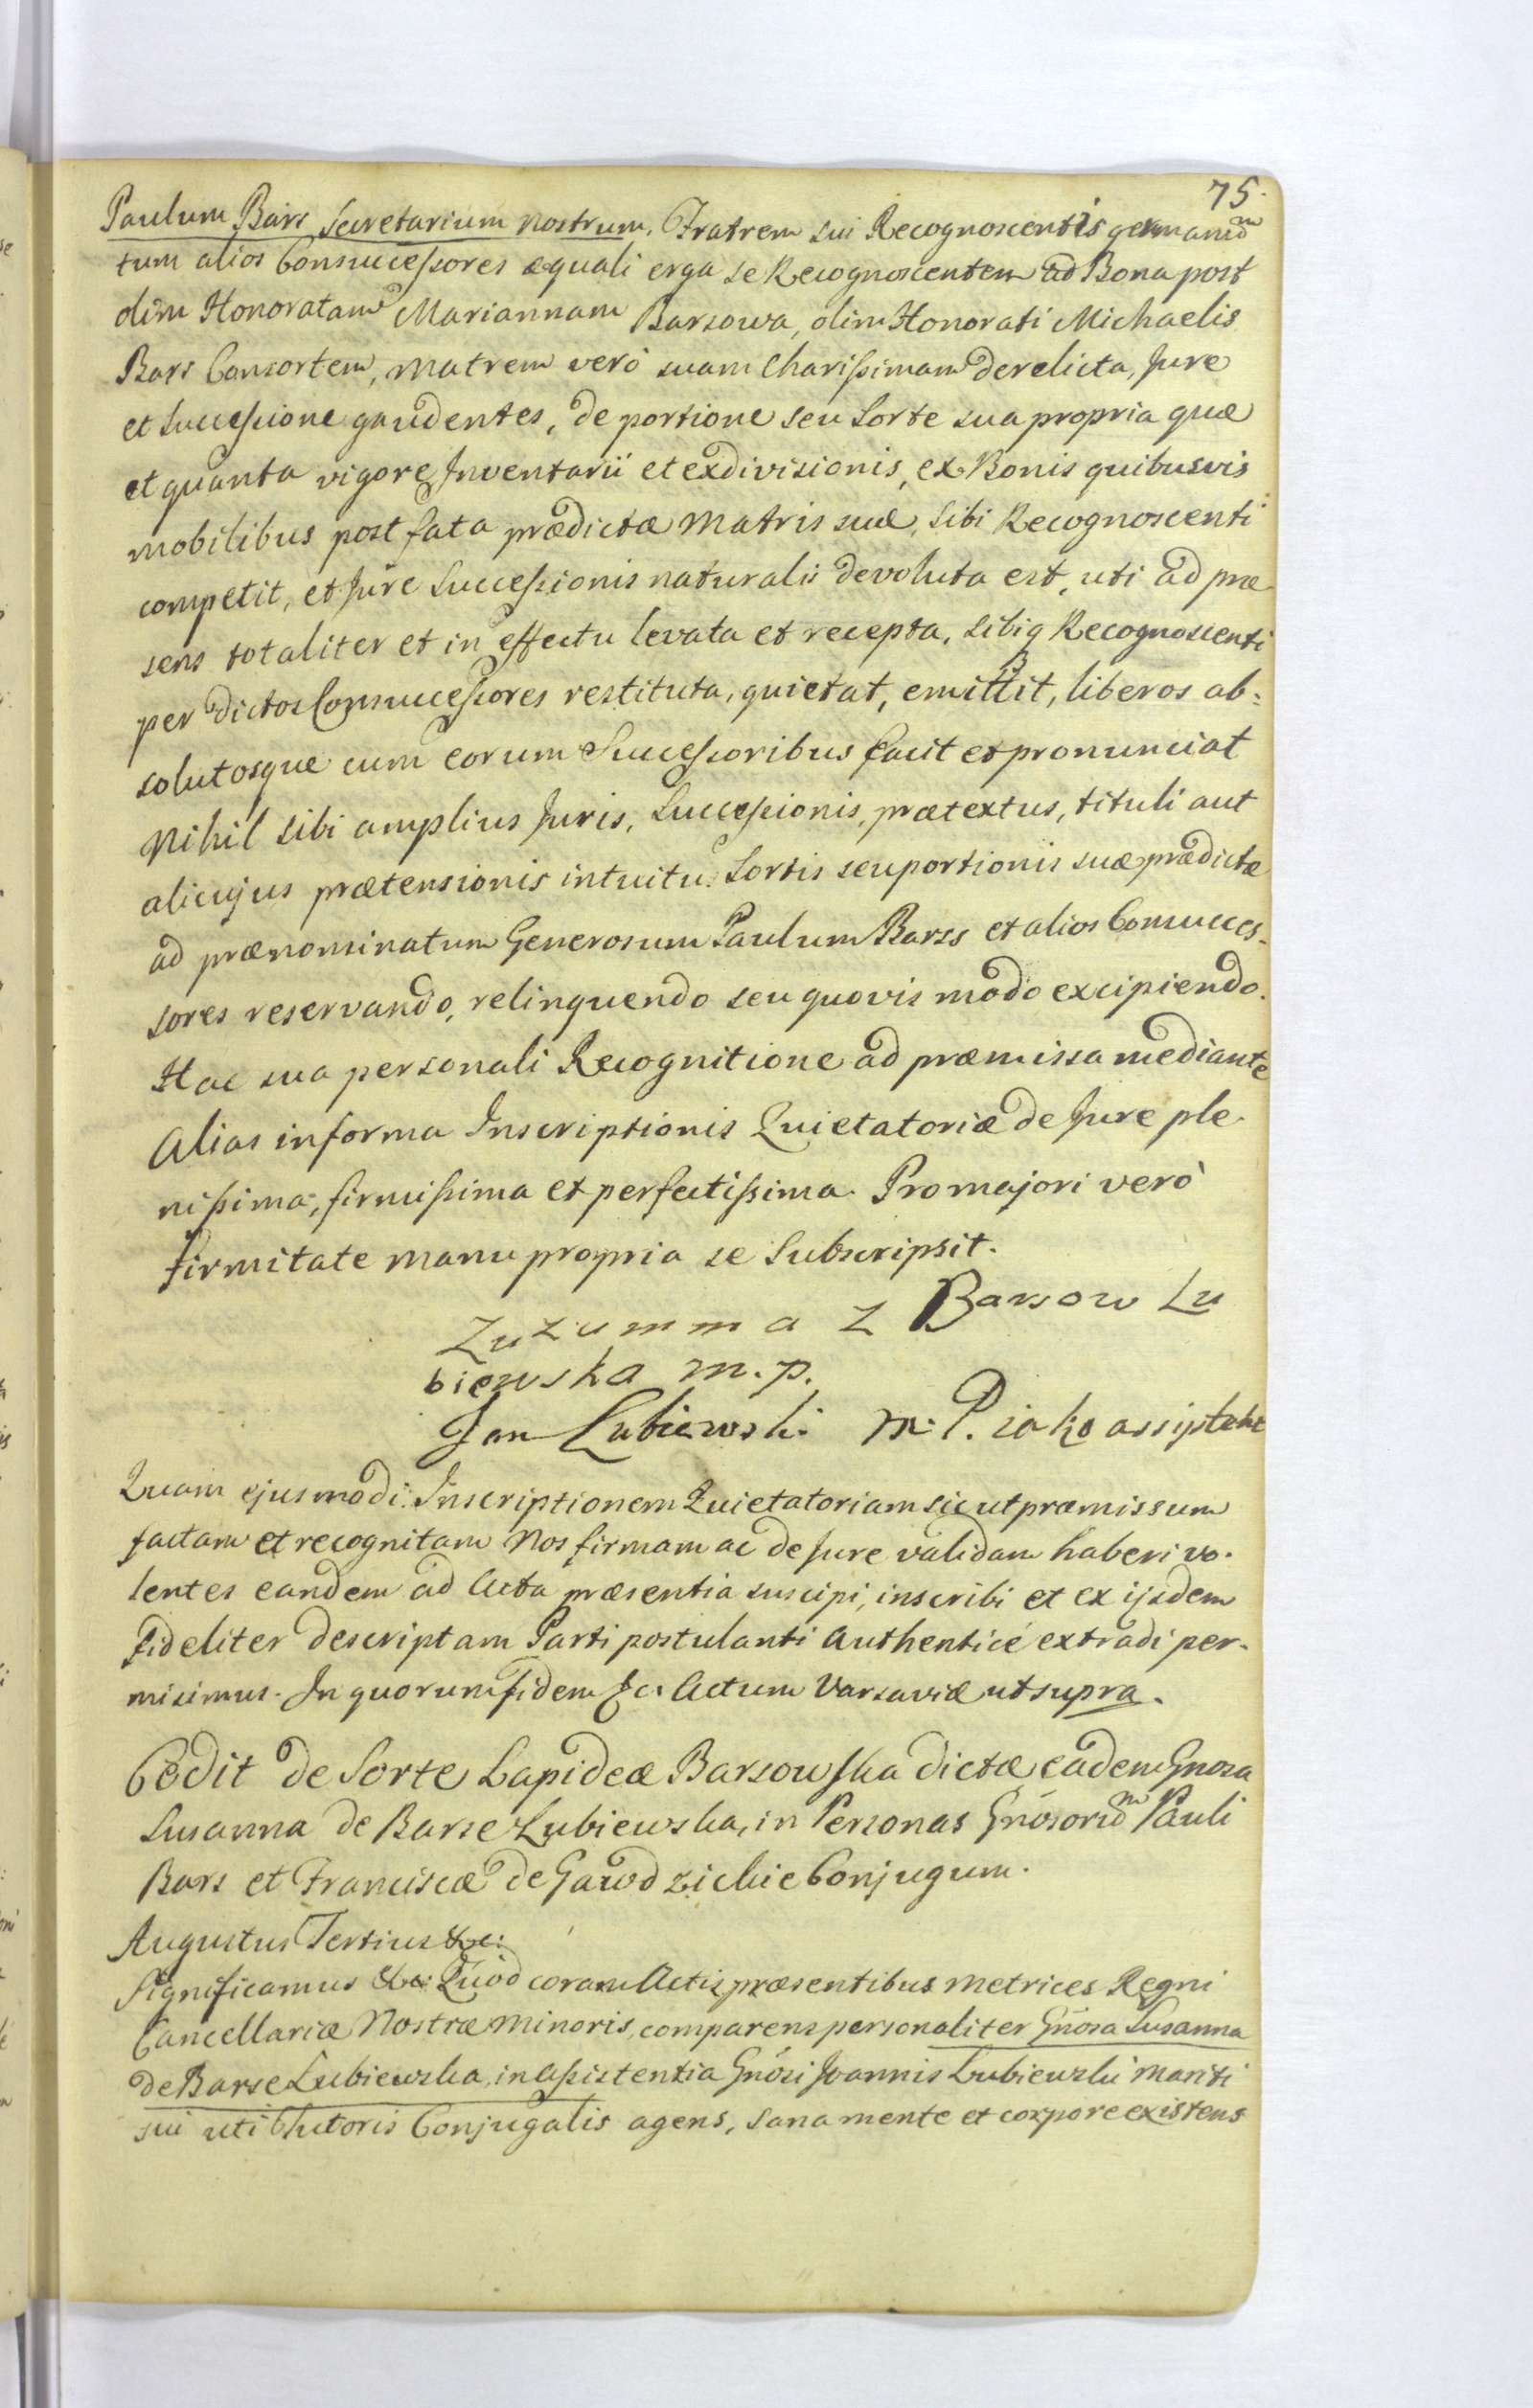 75.
Paulum Bars Secretarium Nostrum, Fratrem sui Recognoscentis germanũ
tum alios Consuccessores æquali erga se Recognoscentem ad Bona post
olim Honoratam Mariannam Barsowa, olim Honorati Michaelis
Bars Consortem, Matrem verò suam Charissimam derelicta, Jure
et Successione gaudentes, de portione seu Sorte sua propria quæ
et quanta vigore Inventarii et exdivisionis, ex Bonis quibusvis
mobilibus post fata prædictæ Matris suæ, sibi Recognoscenti
competit, et Jure Successionis naturalis devoluta est, uti ad præ-
sens totaliter et in effectu levata et recepta, sibiq Recognoscenti
per dictos Consuccessores restituta, quietat, emittit, liberos ab-
solutosque cum eorum Successoribus facit et pronunciat
Nihil sibi amplius Juris, Successionis, prætextus, tituli aut
alicujus prætensionis intuitu Sortis seu portionis suæ prædictæ
ad prænominatum Generosum Paulum Barss et alios Consucces-
sores reservando, relinquendo seu quovis modo excipiendo.
Hac sua personali Recognitione ad præmissa mediante
Alias in forma Inscriptionis Quietatoriæ de Jure ple-
nissima, firmissima et perfectissima. Pro majori verò
firmitate manu propria se Subscripsit.
Zuzumma z Barsow Lu
biewska m.p.
Jan Lubiewski m.P. jako assistent
Quam ejusmodi Inscriptionem Quietatoriam sic ut præmissum
factam et recognitam Nos firmam ac de Jure validam haberi vo-
lentes eandem ad Acta præsentia suscipi, inscribi et ex ijsdem
fideliter descriptam Parti postulanti Authenticè extradi per-
misimus. In quorum fidem &c. Actum Varsaviæ ut supra.
Cedit de Sorte Lapideæ Barsowska dictæ eadem Gnosa
Susanna de Barse Lubiewska, in Personas Gnosorũ Pauli
Bars et Franciscæ de Gawdzickie Conjugum.
Augustus Tertius &c:
Significamus &c: Quod coram Actis præsentibus Metrices Regni
Cancellariæ Nostræ Minoris, comparens personaliter Gnosa Susanna
de Barse Lubiewska, in Assistentia Gnosi Joannis Lubiewski Mariti
sui uti Thutoris Conjugalis agens, sana mente et corpore existens